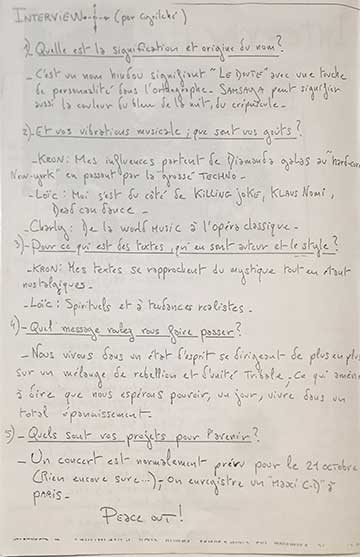 INTERVIEW (par courrier)
1) Quelle est la signification et origine du nom?
- C'est un nom hindou signifiant "LE DOUTE" avec une touche
de personnalité dans l'orthographe. SAMSAYA peut signifier
aussi la couleur du bleu de la nuit, du crépuscule.
2) - Et vos vibrations musicale; que sont vos goûts?
- KRON: Mes influences partent de Diamanda galas au "hardcore
New-york" en passant par la grosse TECHNO.
- Loïc: Moi s'est du côté de KILLING JOKE, KLAUS NOMI,
Dead can dance.
- Charly: De la world MUSIC à l'opéra classique.
3) - Pour ce qui est des textes, qui en sont auteur et le style?
- KRON: Mes textes se rapprochent du mystique tout en étant
nostalgiques.
- Loïc: Spirituels et à tendances réalistes.
4) - Quel message voulez vous faire passer?
- Nous vivons dans un état d'esprit se dirigeant de plus en plus
sur un mélange de rebellion et d'unité Tribale, Ce qui amène
à dire que nous espérons pouvoir, un jour, vivre dans un
total épanouissement.
5) - Quels sont vos projets pour l'avenir?
- Un concert est normalement prévu pour le 21 octobre
(Rien encore sure...), On enregistre un "Maxi C.D" à
PARIS.
PEACE OUT!